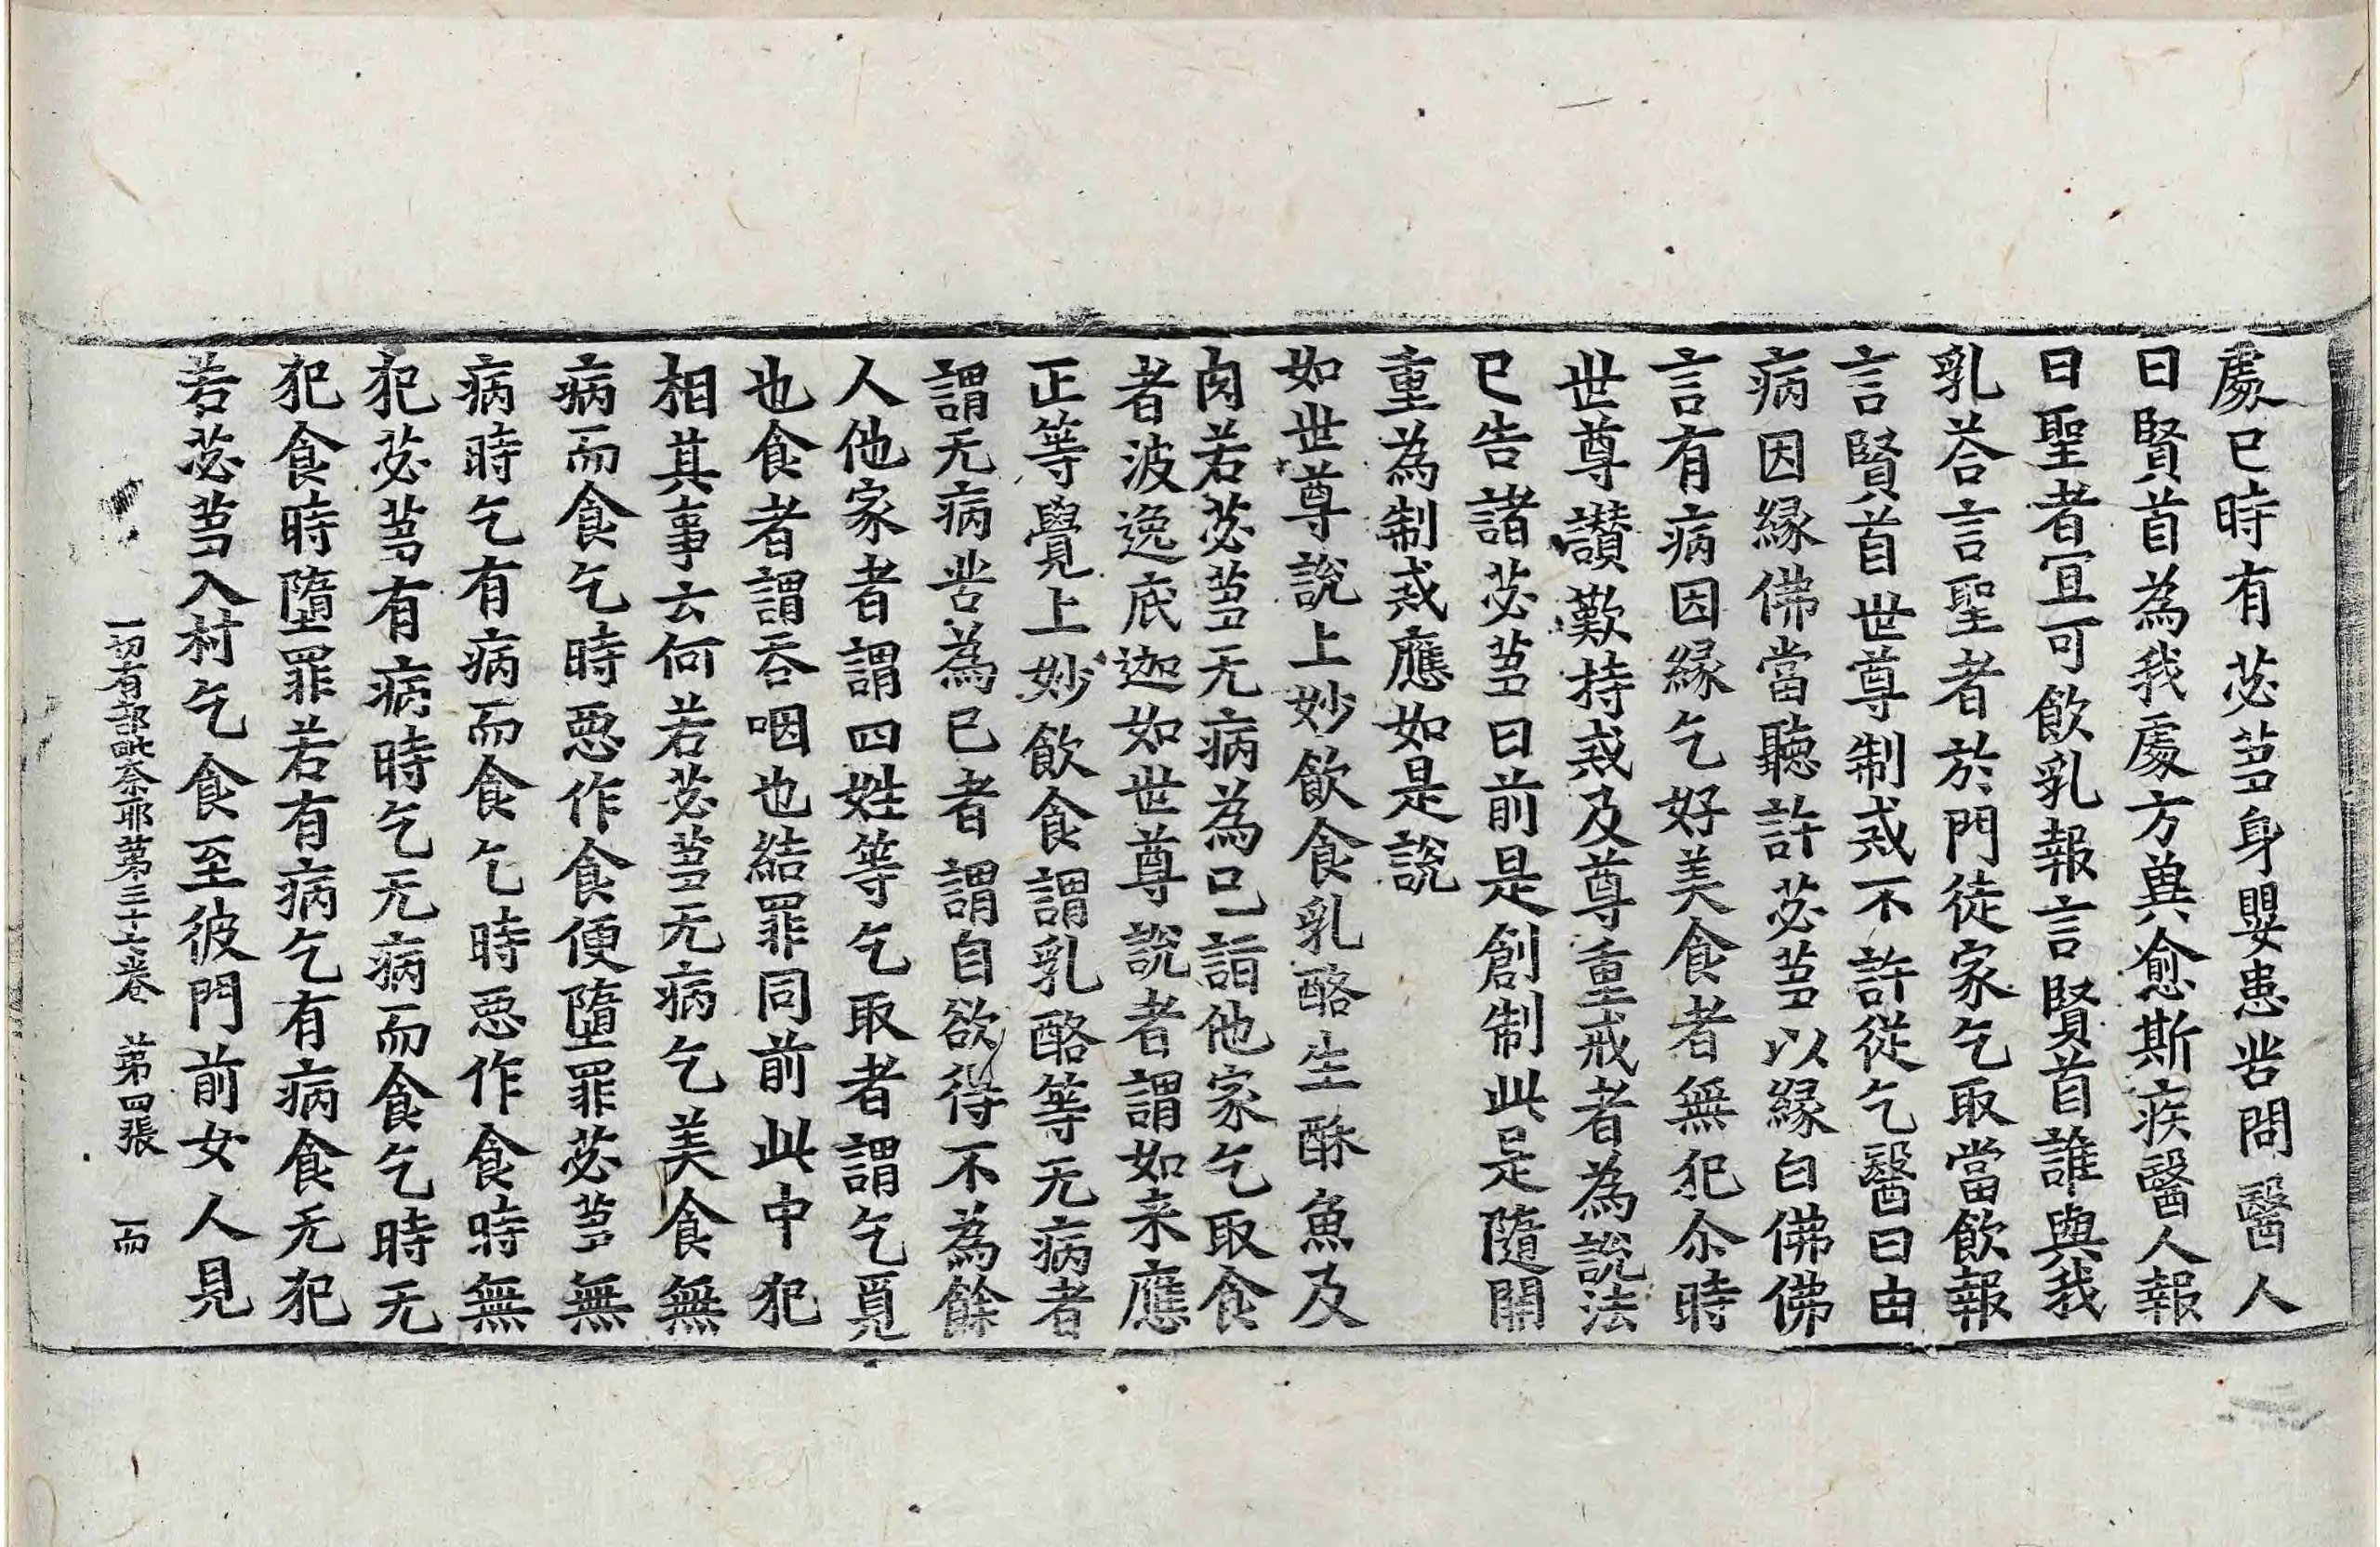 處已時有苾芻身嬰患苦問醫人
曰賢首為我處方冀愈斯疾醫人報
曰聖者宜可飲乳報言賢首誰與我
乳荅言聖者於門徒家乞取當飲報
言賢首世尊制戒不許從乞醫曰由
病因縁佛當聽許苾芻以縁白佛佛
言有病因縁乞好美食者無犯尒時
世尊讃歎持戒及尊重戒者為說法
已告諸苾芻曰前是創制此是隨開
重為制戒應如是說
如世尊說上妙飲食乳酪生酥魚及
肉若苾芻无病為己詣他家乞取食
者波逸底迦如世尊說者謂如来應
正等覺上妙飲食謂乳酪等无病者
謂无病苦為已者謂自欲得不為餘
人他家者謂四姓等乞取者謂乞覓
也食者謂吞咽也結罪同前此中犯
相其事云何若苾芻无病乞美食無
病而食乞時惡作食便墮罪苾芻無
病時乞有病而食乞時惡作食時無
犯苾芻有病時乞无病而食乞時无
犯食時墮罪若有病乞有病食无犯
若苾芻入村乞食至彼門前女人見
一切有部毗奈耶苐三十六卷 苐四張 而